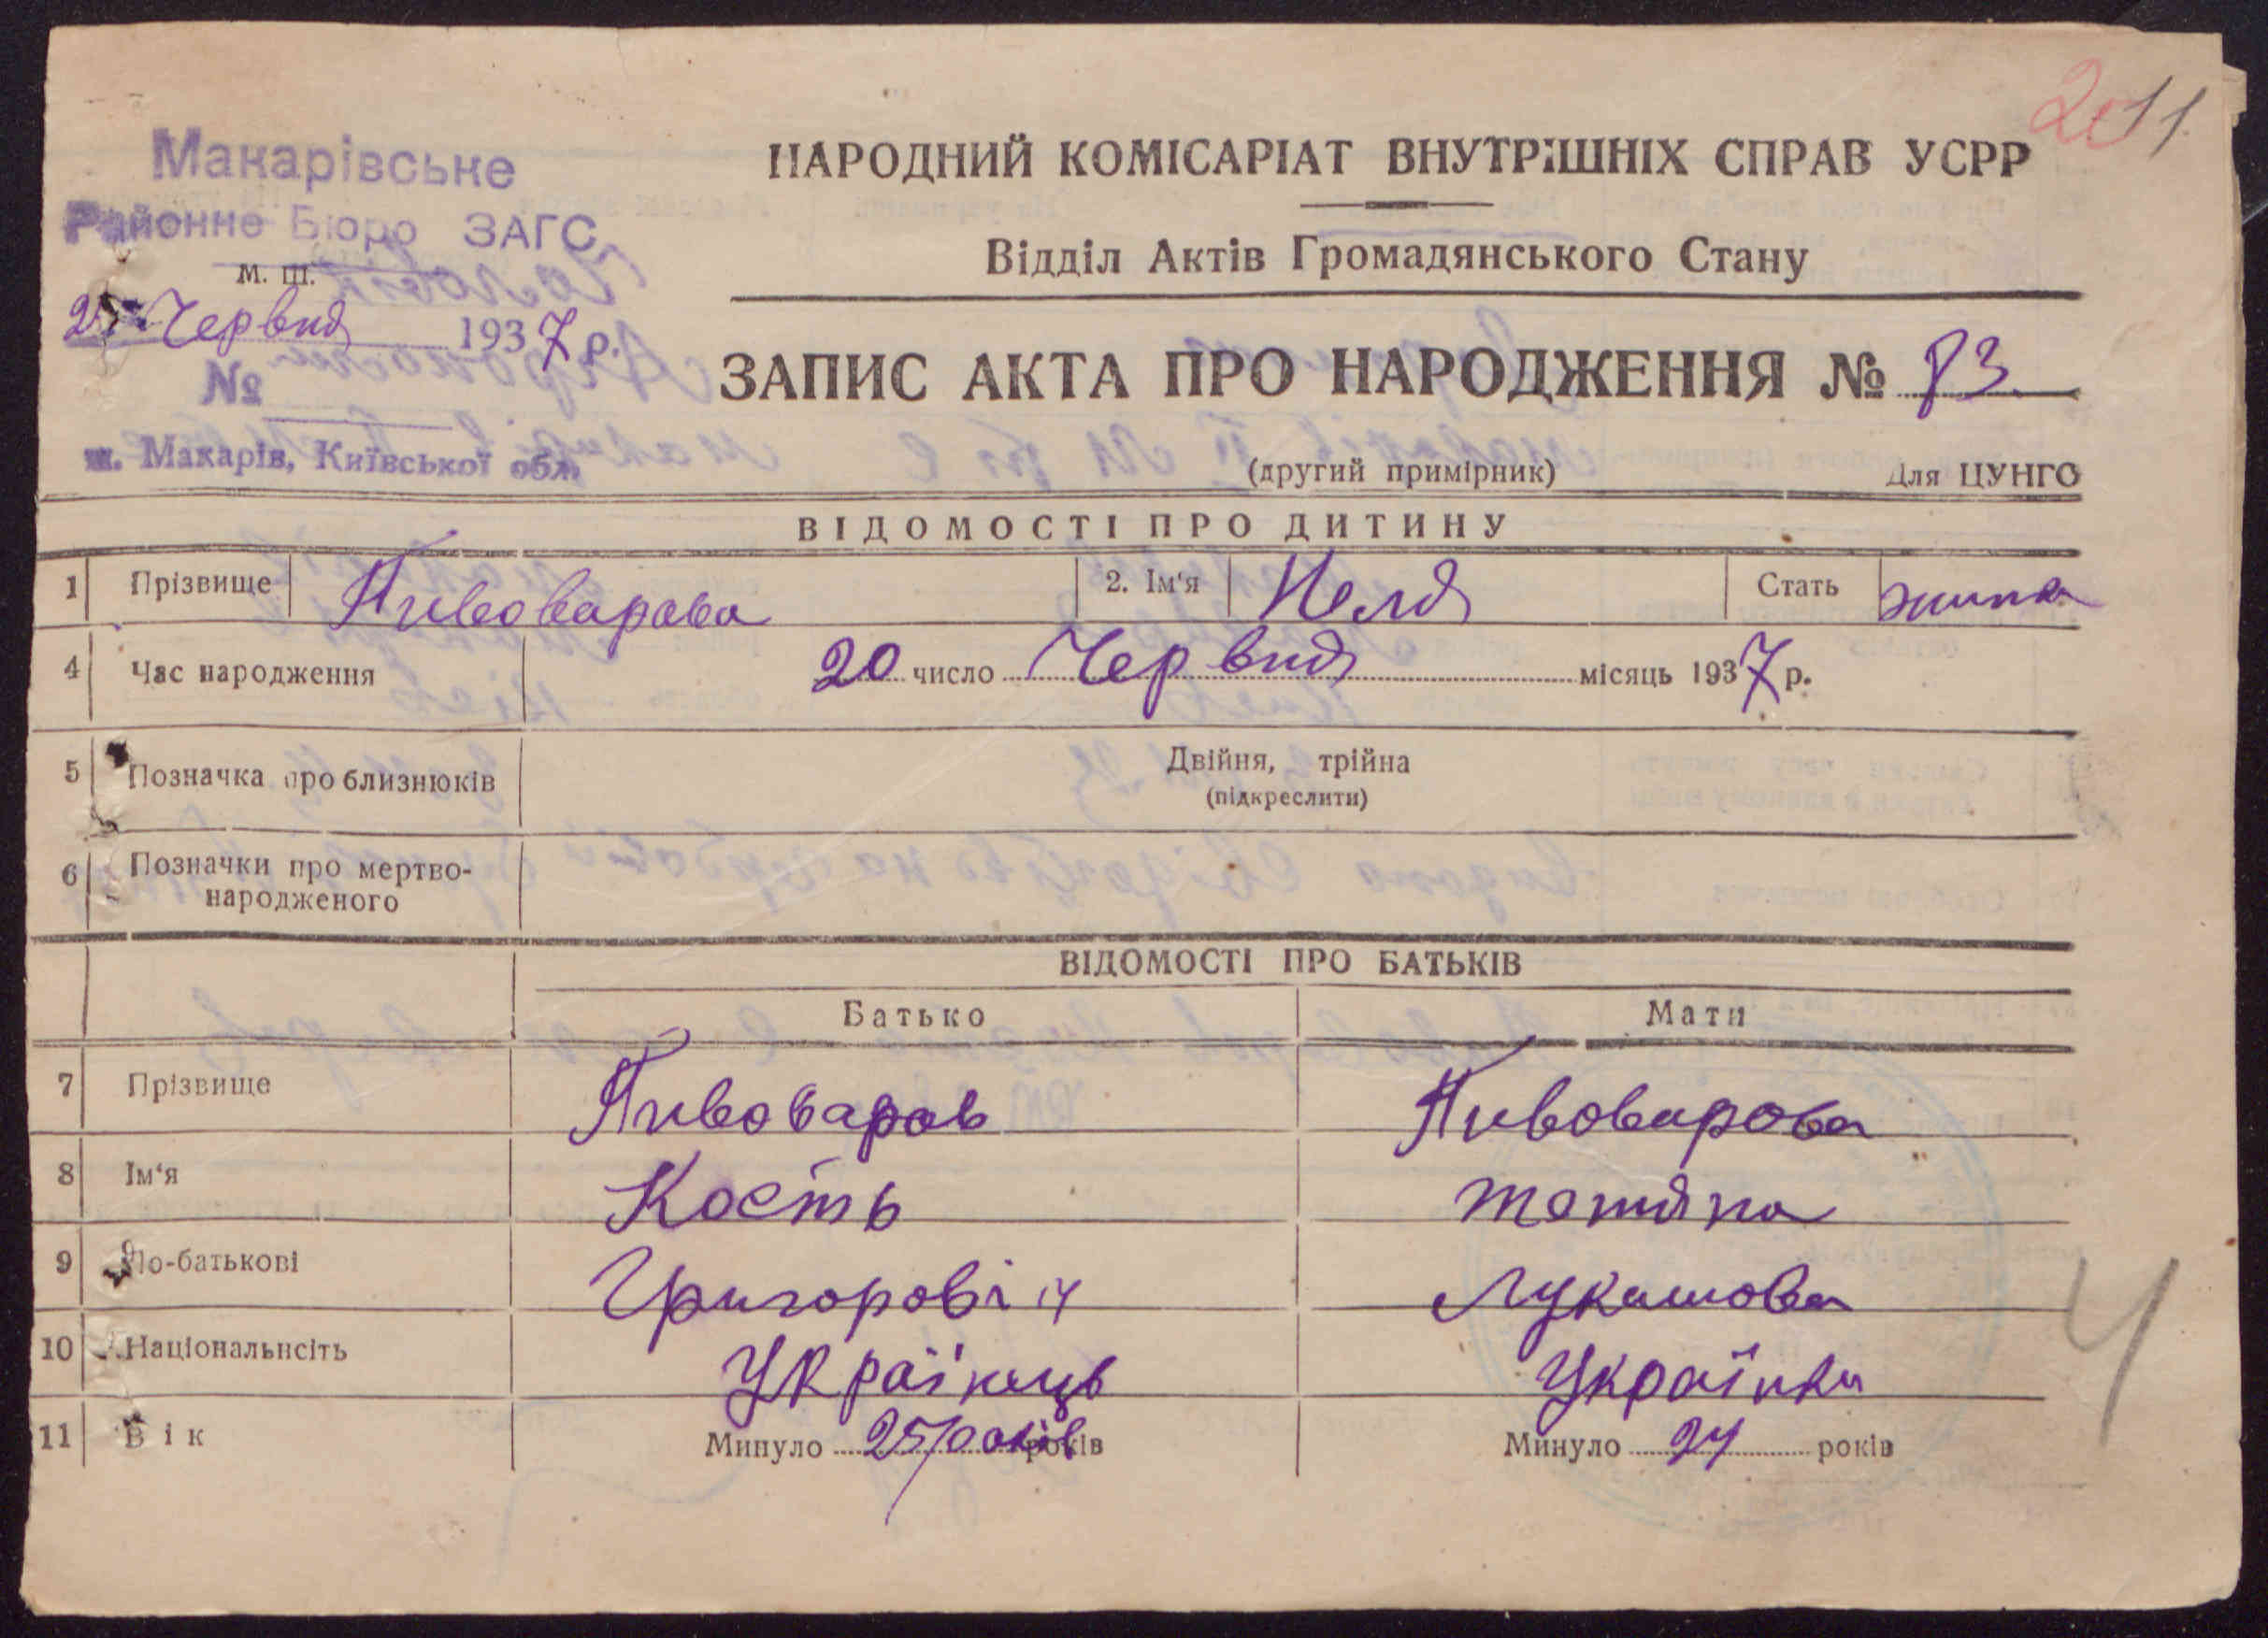 11
Макарівське
Районне Бюро ЗАГС
м. ш.
Червня 1937 р.
№
м. Макарів, Київської обл.
НАРОДНИЙ КОМІСАРІАТ ВНУТРІШНІХ СПРАВ УСРР
Відділ Актів Громадянського Стану
ЗАПИС АКТА ПРО НАРОДЖЕННЯ № 83
(другий примірник) Для ЦУНГО
ВІДОМОСТІ ПРО ДИТИНУ
1 Прізвище Пивоварова 2. Ім'я Неля Стать жінка
4 Час народження 20 число Червня місяць 1937 р.
5 Позначка про близнюків Двійня, трійна
(підкреслити)
6 Позначки про мертво-
народженого
ВІДОМОСТІ ПРО БАТЬКІВ
Батько Мати
7 Прізвище Пивоваров Пивоварова
8 Ім'я Кость Тетяна
9 По-батькові Григоровіч Лукашова
10 Національнсіть Українець Українка
11 Вік Минуло 25 років років Минуло 24 років
4